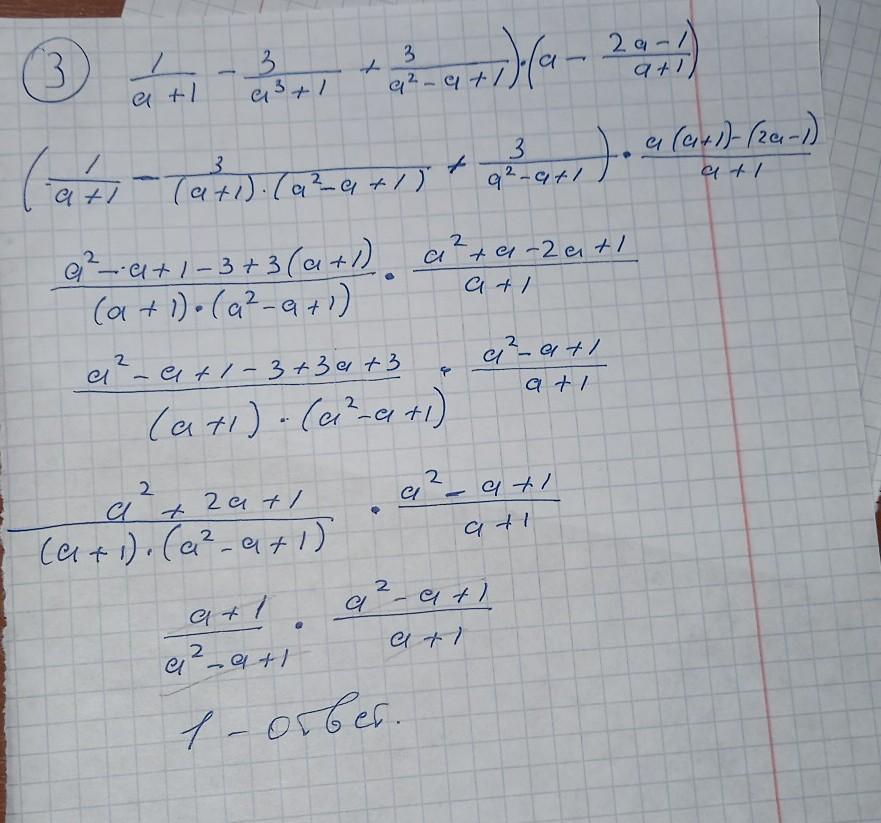 3 1/(a+1) - 3/(a³+1) + 3/(a²-a+1)) · (a - (2a-1)/(a+1))
(1/(a+1) - 3/((a+1)·(a²-a+1)) + 3/(a²-a+1)) · (a(a+1)-(2a-1))/(a+1)
(a²-a+1-3+3(a+1))/((a+1)·(a²-a+1)) · (a²+a-2a+1)/(a+1)
(a²-a+1-3+3a+3)/((a+1)·(a²-a+1)) · (a²-a+1)/(a+1)
(a²+2a+1)/((a+1)·(a²-a+1)) · (a²-a+1)/(a+1)
(a+1)/(a²-a+1) · (a²-a+1)/(a+1)
1 - ответ.